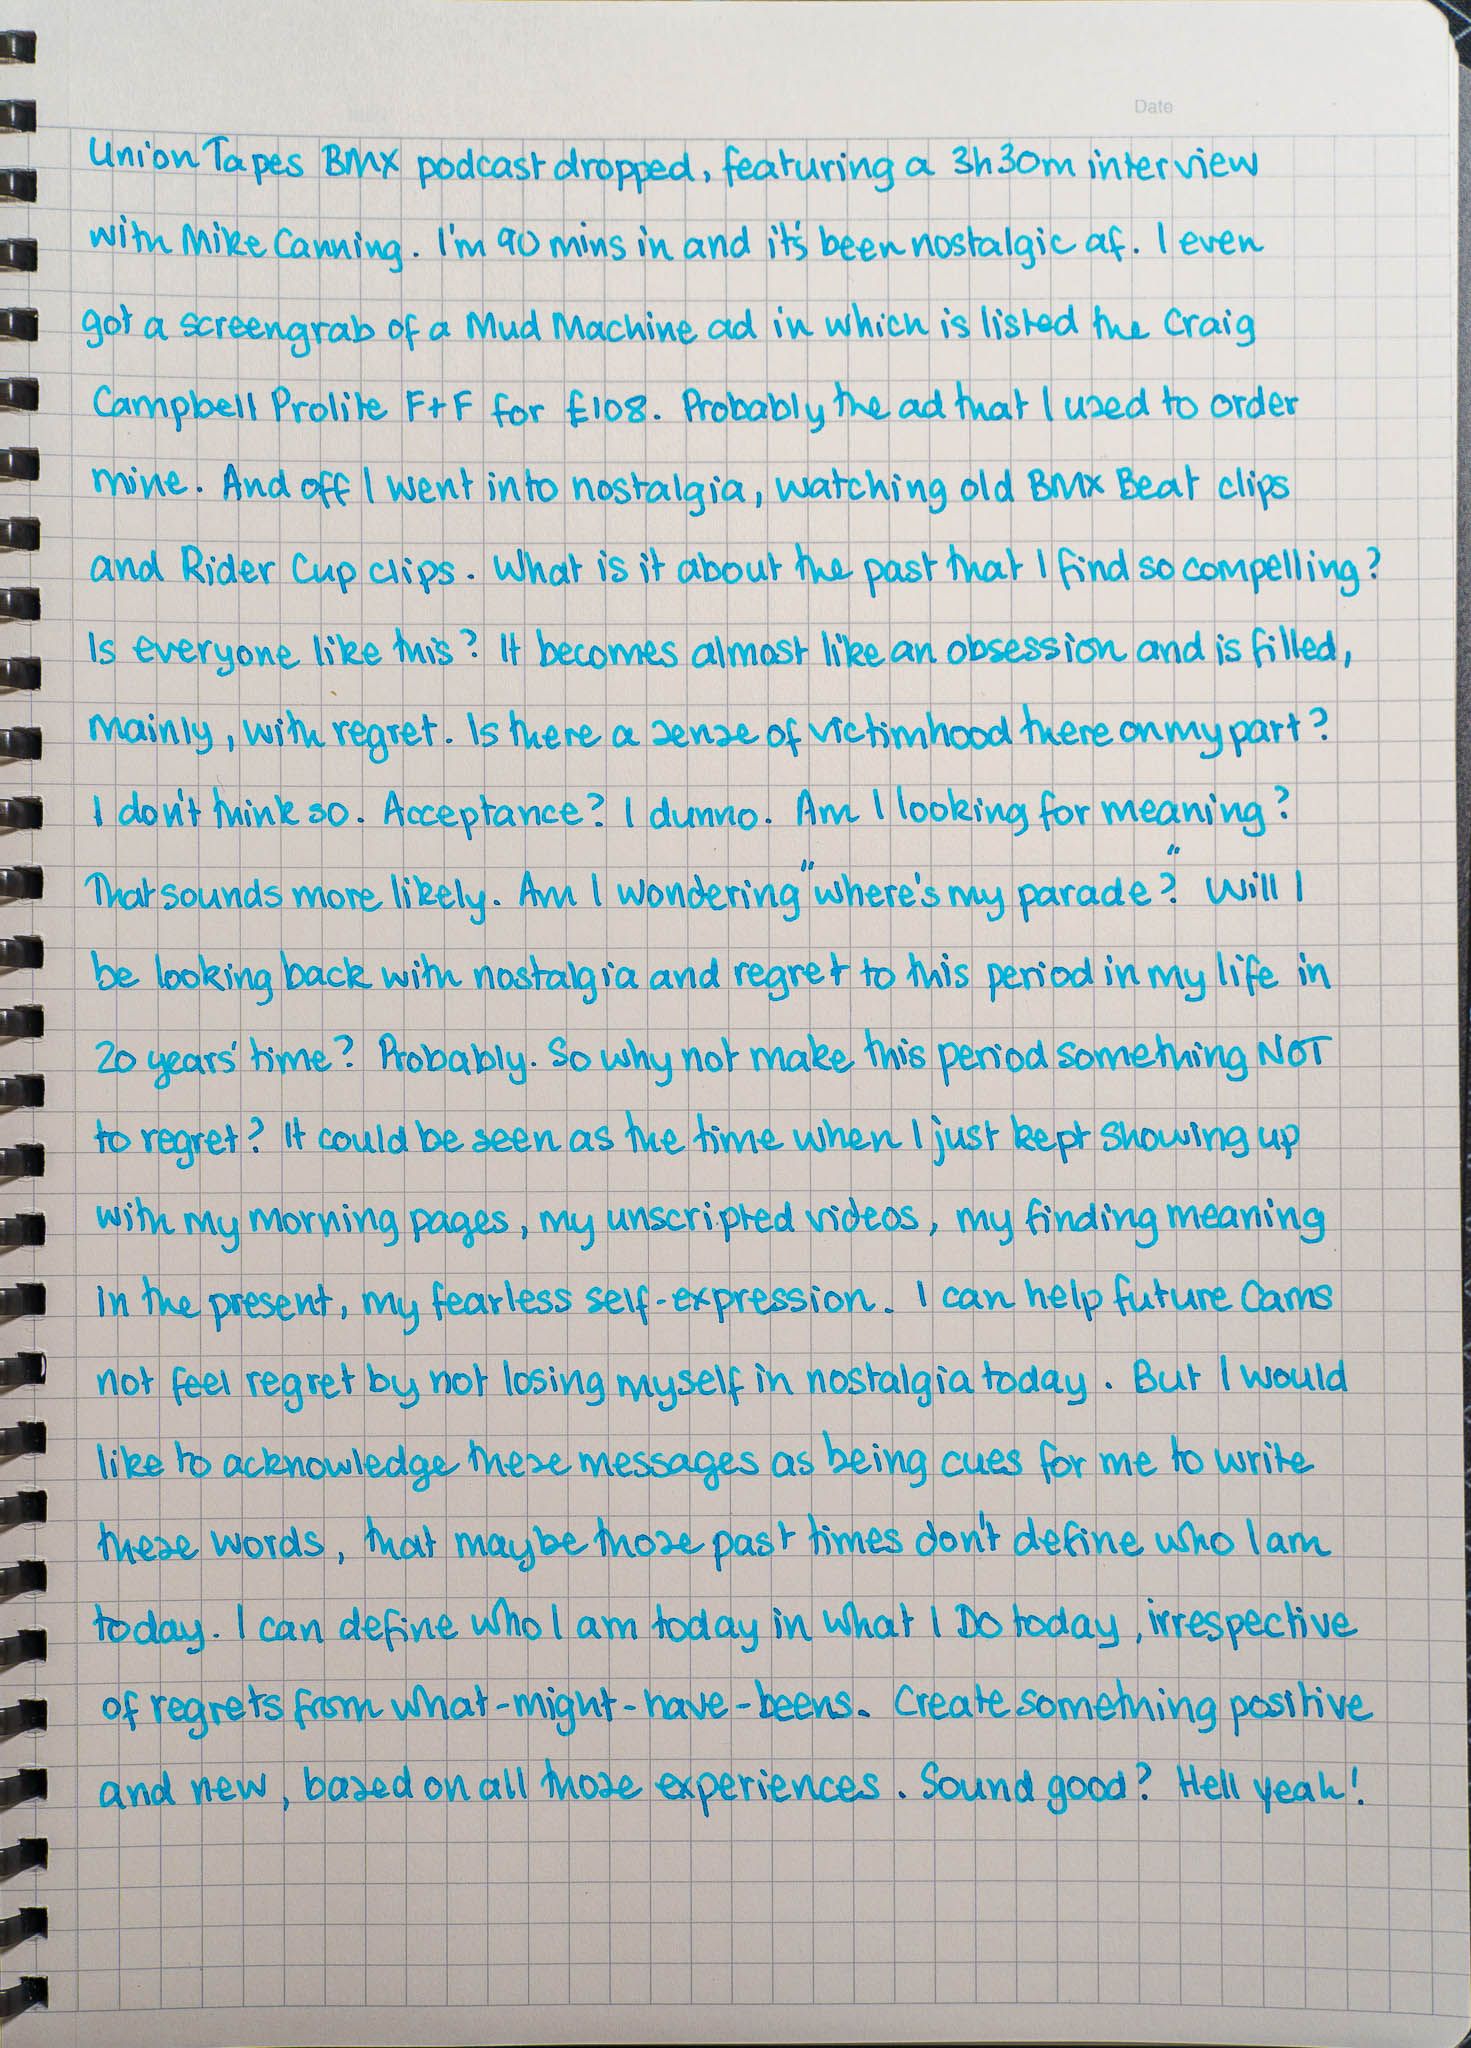 Date
Union Tapes BMX podcast dropped, featuring a 3h30m interview
with Mike Canning. I'm 90 mins in and it's been nostalgic af. I even
got a screengrab of a Mud Machine ad in which is listed the Craig
Campbell Prolite F+F for £108. Probably the ad that I used to order
mine. And off I went into nostalgia, watching old BMX Beat clips
and Rider Cup clips. What is it about the past that I find so compelling?
Is everyone like this? It becomes almost like an obsession and is filled,
mainly, with regret. Is there a sense of victimhood there on my part?
I don't think so. Acceptance? I dunno. Am I looking for meaning?
That sounds more likely. Am I wondering "where's my parade?" Will I
be looking back with nostalgia and regret to this period in my life in
20 years' time? Probably. So why not make this period something NOT
to regret? It could be seen as the time when I just kept showing up
with my morning pages, my unscripted videos, my finding meaning
in the present, my fearless self-expression. I can help future Cams
not feel regret by not losing myself in nostalgia today. But I would
like to acknowledge these messages as being cues for me to write
these words, that maybe those past times don't define who I am
today. I can define who I am today in what I DO today, irrespective
of regrets from what-might-have-beens. Create something positive
and new, based on all those experiences. Sound good? Hell yeah!